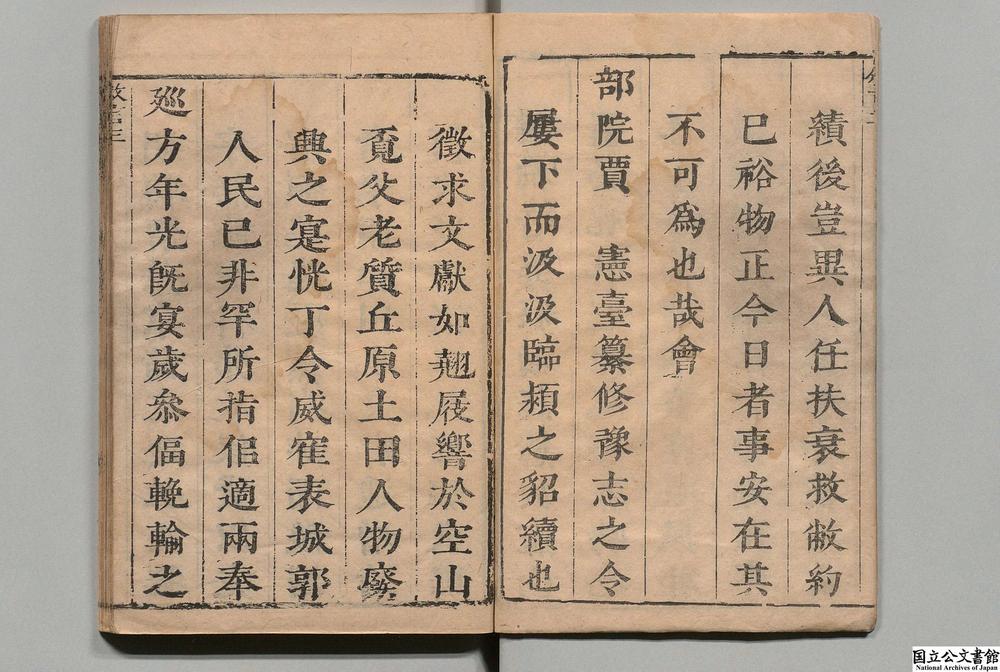 績後豈異人任扶衰救敝約
已裕物正今日者事安在其
不可爲也哉會
部院賈　憲臺纂修豫志之令
屢下而汲汲臨頛之貂續也
徵求文獻如翹屐響於空山
覔父老質丘原土田人物廢
興之寔恍丁令威寉表城郭
人民已非罕所指佀適兩奉
廵方年光旣宴歲叅偪輓輪之
国立公文書館
National Archives of Japan